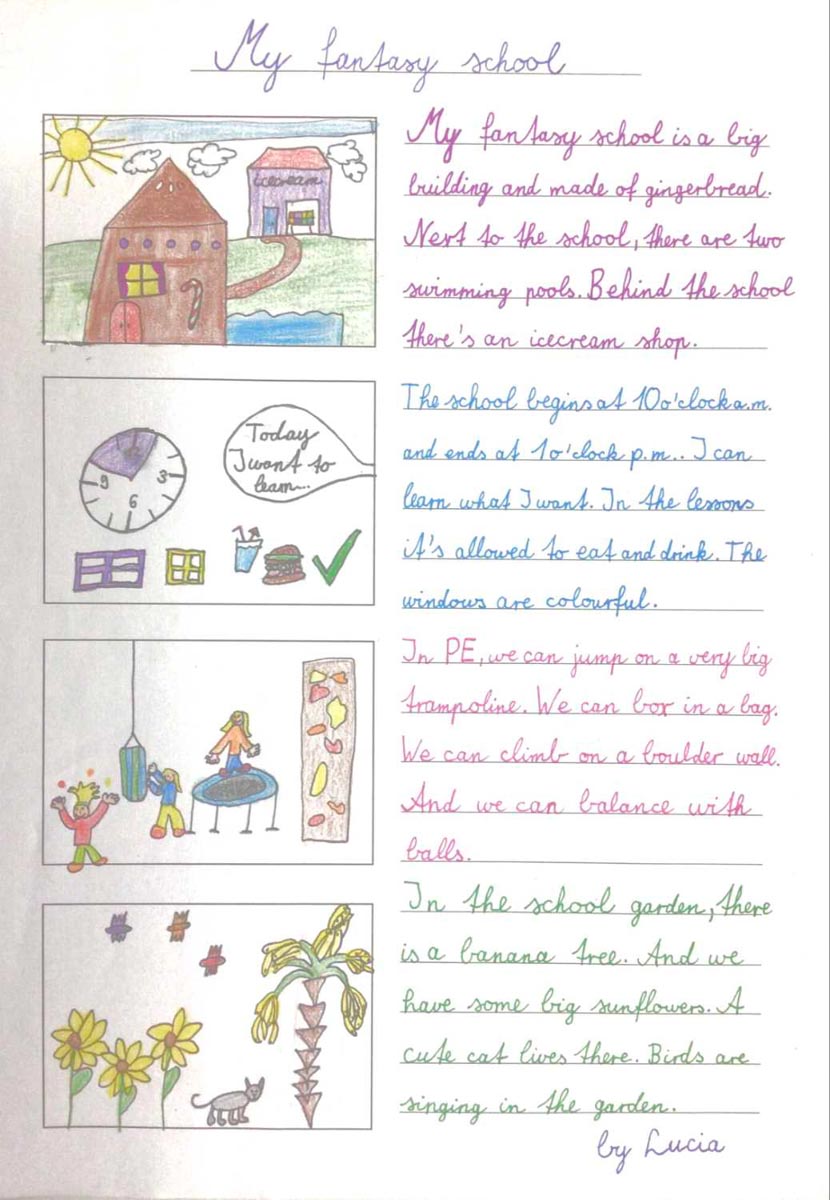 My fantasy school
icecream
My fantasy school is a big
building and made of gingerbread.
Next to the school, there are two
swimming pools. Behind the school
there's an icecream shop.
12
9
3
6
Today
I want to
learn...
The school begins at 10 o'clock a.m.
and ends at 1 o'clock p.m.. I can
learn what I want. In the lessons
it's allowed to eat and drink. The
windows are colourful.
In PE, we can jump on a very big
trampoline. We can box in a bag.
We can climb on a boulder wall.
And we can balance with
balls.
In the school garden, there
is a banana tree. And we
have some big sunflowers. A
cute cat lives there. Birds are
singing in the garden.
by Lucia